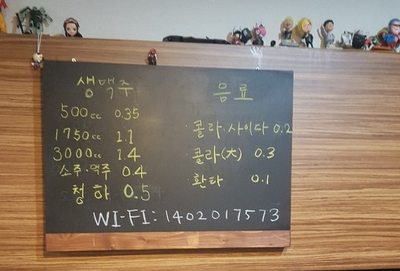 생맥주
500cc 0.35
1750cc 1.1
3000cc 1.4
소주·맥주 0.4
청하 0.5
음료
콜라·사이다 0.2
콜라(大) 0.3
환타 0.1
WI-FI: 1402017573